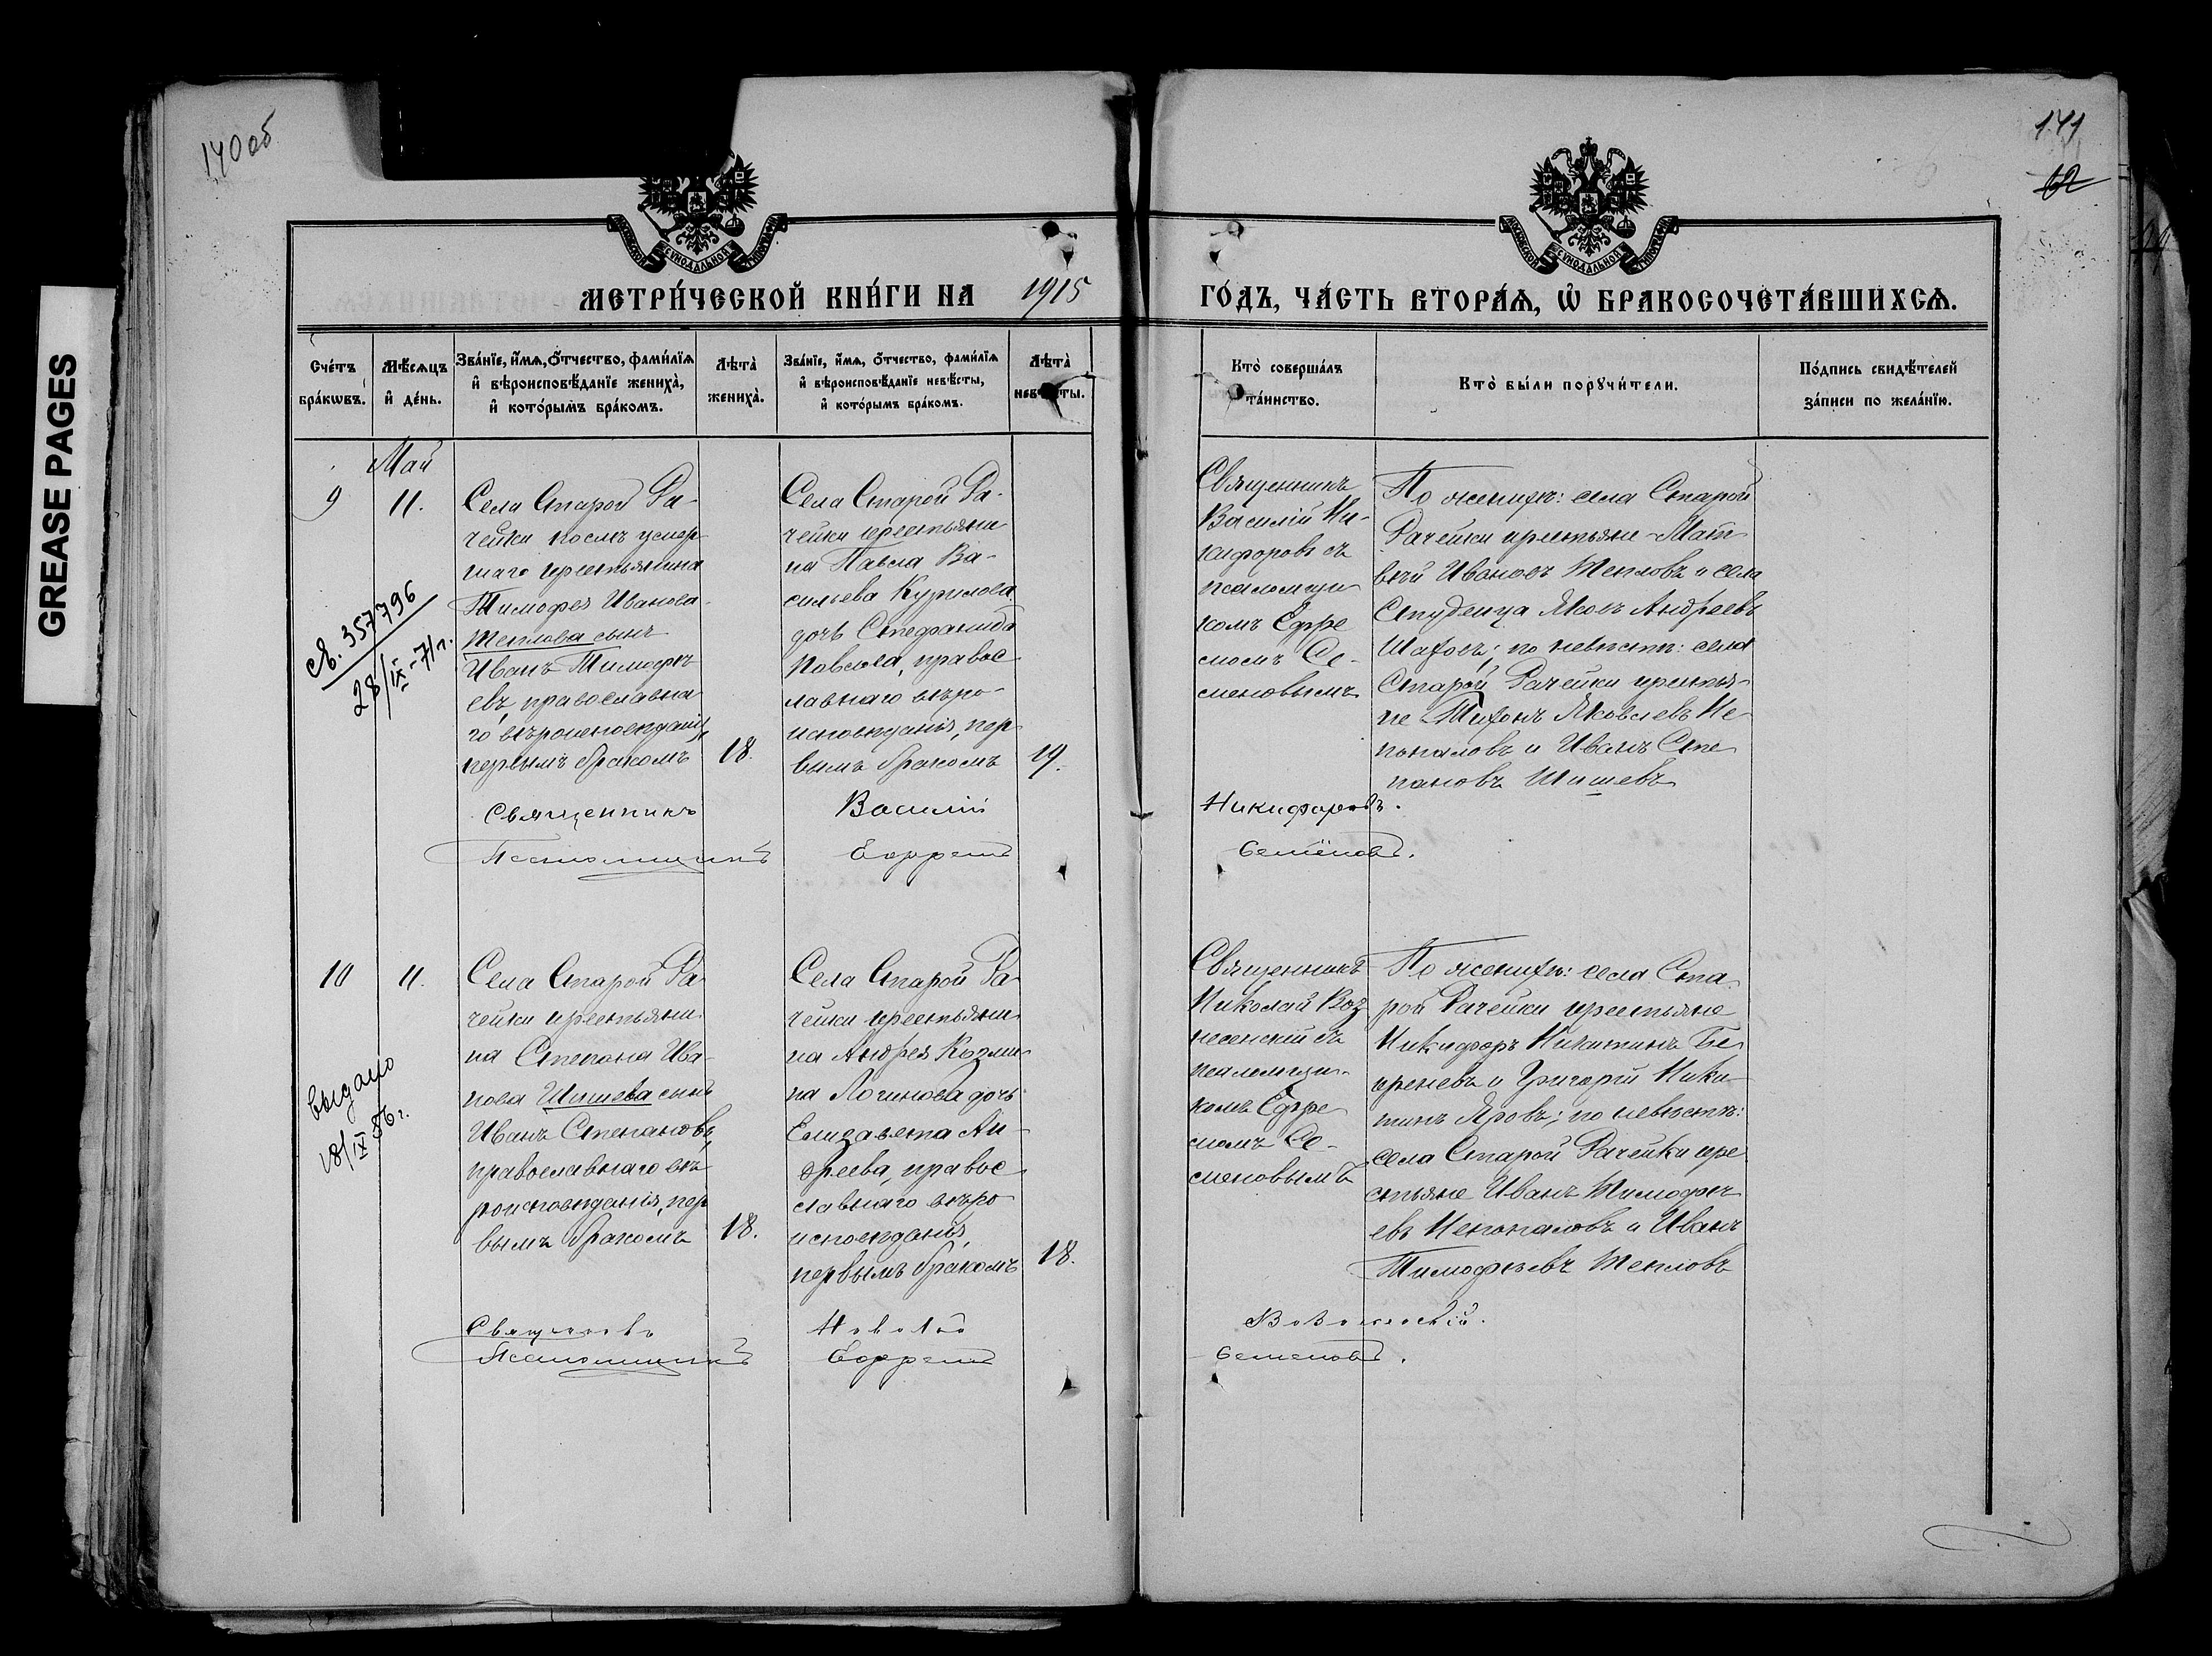 GREASE PAGES
140 об
141
62
МЕТРИ́ЧЕСКОЙ КНИ́ГИ НА 1915 ГО́ДЪ, ЧА́СТЬ ВТОРА́Ѧ, Ѡ БРАКОСОЧЕТА́ВШИХСѦ.
Сче́тъ бра́кѡвъ.
Мѣ́сѧцъ и҆ де́нь.
Зва́нїе, и҆́мѧ, ѻ҆́тчество, фами́лїѧ и҆ вѣроисповѣ́данїе жениха̀, и҆ кото́рымъ бра́комъ.
Лѣта̀ жениха̀.
Зва́нїе, и҆́мѧ, ѻ҆́тчество, фами́лїѧ и҆ вѣроисповѣ́данїе невѣ́сты, и҆ кото́рымъ бра́комъ.
Лѣта̀ невѣ́сты.
Кто̀ соверша́лъ та́инство.
Кто̀ бы́ли порꙋчи́тели.
По́дпись свидѣ́телей за́писи по жела́нїю.
Май
9
11.
Св. 357796
28/IX-7/г.
Села Старой Ра-
чейки послѣ умер-
шаго крестьянина
Тимофея Иванова
Теплова сынъ
Иванъ Тимофѣ-
евъ, православна-
го вѣроисповѣданія
первымъ бракомъ
18.
Села Старой Ра-
чейки крестьяни-
на Павла Ва-
сильева Курилова
дочь Стефанида
Павлова, правос-
лавнаго вѣро-
исповѣданія, пер-
вымъ бракомъ
19.
Священникъ
Василій Ни-
кифоровъ съ
псаломщи-
комъ Ефре-
момъ Се-
меновымъ
По женихѣ: села Старой
Рачейки крестьяне Мат-
вѣй Ивановъ Тепловъ и села
Студенца Яковъ Андреевъ
Шаховъ; по невѣстѣ: села
Старой Рачейки крестья-
не Тихонъ Яковлевъ Не-
попаловъ и Иванъ Сте-
пановъ Шишевъ
Священникъ Василій Никифоровъ.
Псаломщикъ Ефремъ Семёновъ.
10
11.
выдано
18/IX 56г.
Села Старой Ра-
чейки крестьяни-
на Степана Ива-
нова Шишева сынъ
Иванъ Степановъ,
православнаго вѣ-
роисповѣданія, пер-
вымъ бракомъ
18.
Села Старой Ра-
чейки крестьяни-
на Андрея Козми-
на Логинова дочь
Елизавета Ан-
дреева, правос-
лавнаго вѣро-
исповѣданія,
первымъ бракомъ
18.
Священникъ
Николай Воз-
несенскій съ
псаломщи-
комъ Ефре-
момъ Се-
меновымъ
По женихѣ: села Ста-
рой Рачейки крестьяне
Никифоръ Никитинъ
и Григорій Ники-
тинъ Яровъ; по невѣстѣ:
села Старой Рачейки кре-
стьяне Иванъ Тимофѣ-
евъ Непопаловъ и Иванъ
Тимофѣевъ Тепловъ
Священникъ Николай Вознесенскій.
Псаломщикъ Ефремъ Семеновъ.